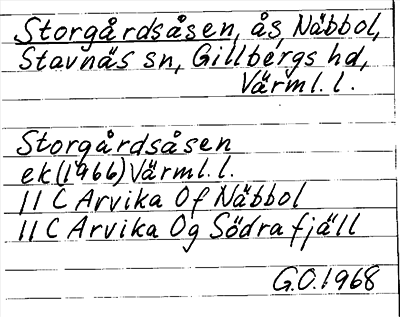 Storgårdsåsen, ås, Näbbol,
Stavnäs sn, Gillbergs hd,
Värml. l.
Storgårdsåsen
ek (1966) Värml. l.
11 C Arvika Of Näbbol
11 C Arvika Og Södra fjäll
G.O. 1968